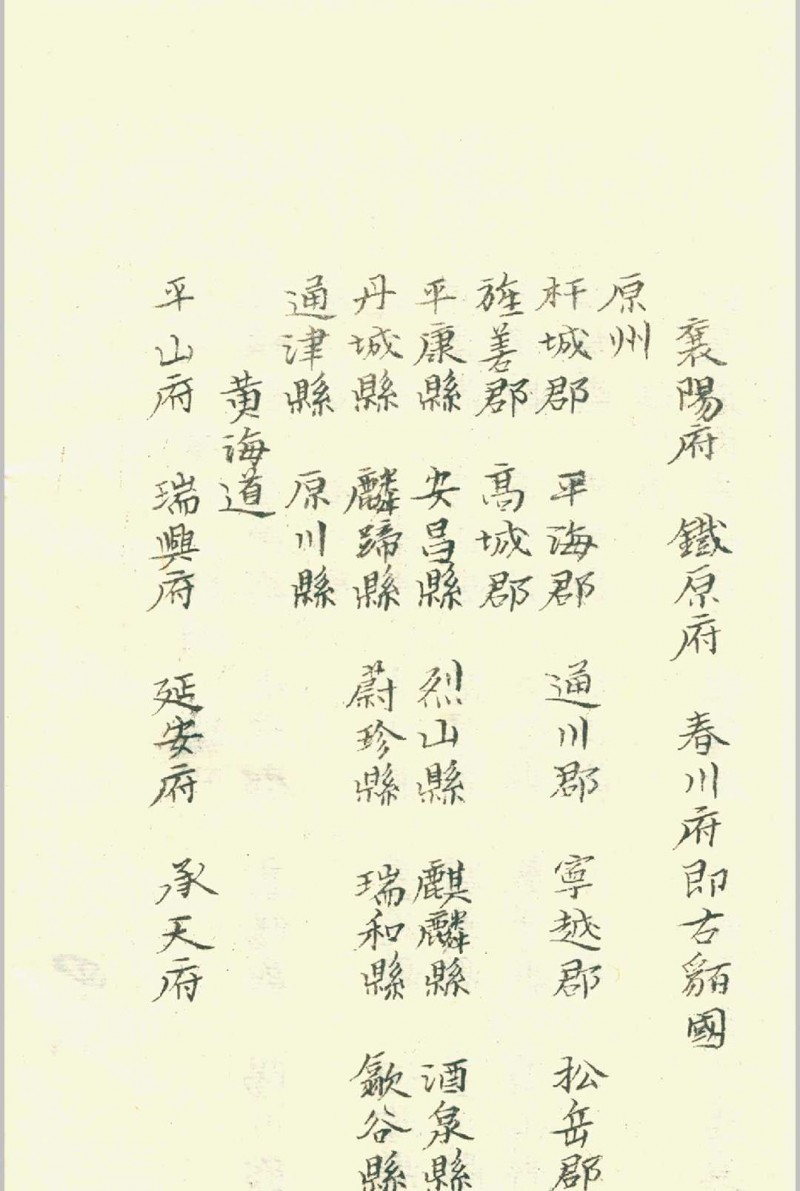 襄陽府　鐵原府　春川府即古貊國
原州
杆城郡　平海郡　通川郡　寧越郡　松岳郡
旌善郡　高城郡
平康縣　安昌縣　烈山縣　麒麟縣　酒泉縣
丹城縣　麟蹄縣　蔚珍縣　瑞和縣　歙谷縣
通津縣　原川縣
黃海道
平山府　瑞興府　延安府　承天府